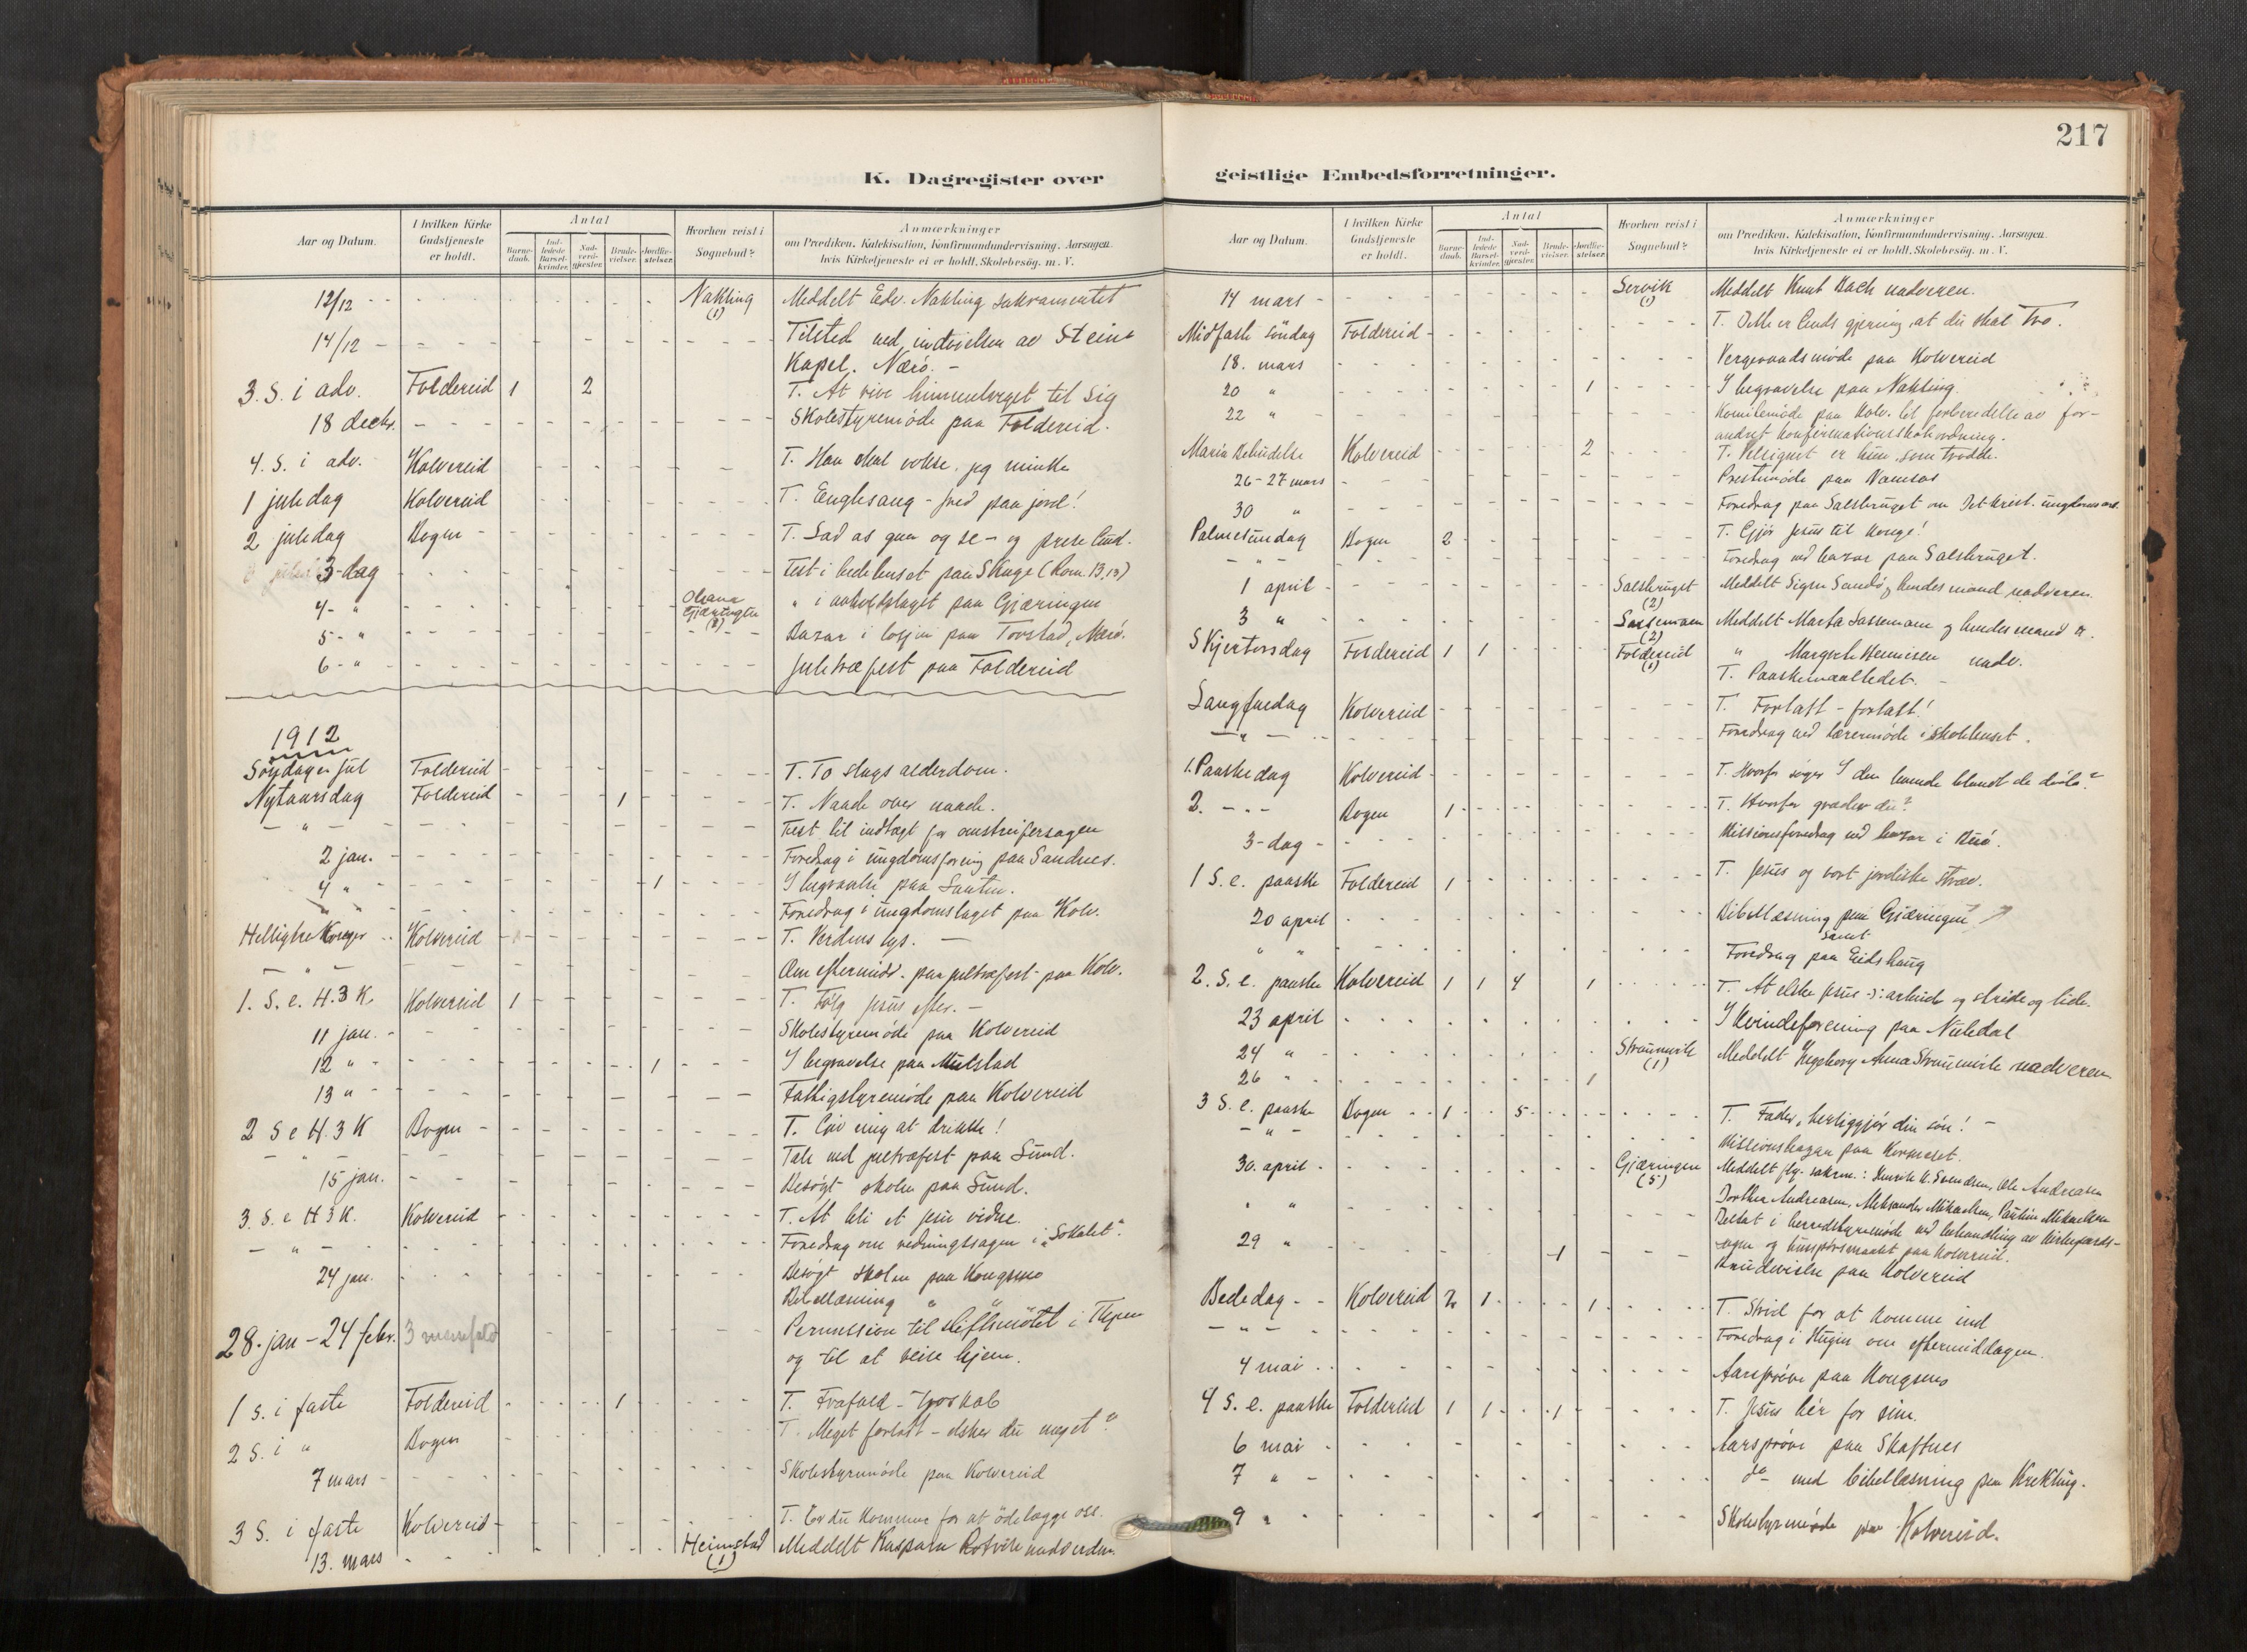 217
K. Dagregister over
geistlige Embedsforretninger.
Aar og Datum.
I hvilken Kirke Gudstjeneste er holdt.
Antal
Barne-daab.
Ind-ledede Barsel-kvinder.
Nad-verd-gjæster.
Brude-vielser.
Jordfæ-stelser.
Hvorhen reist i Sognebud?
Anmærkninger
om Prædiken, Katekisation, Konfirmandundervisning. Aarsagen
hvis Kirketjeneste ei er holdt. Skolebesög. m. V.
12/12 Nakling (1) Meddelt Edv. Nakling sakramentet
14/12 Tilsted ved indvielsen av Steine
Kapel. Nærö. -
3. S. i adv. Foldereid 1 2 T. At rive himmelriget til sig
18 decbr. Skolestyremöde paa Foldereid.
4. S. i adv. Kolvereid T. Han skal vokse, jeg minke
1 juledag Kolvereid T. Englesang - fred paa jord!
2 juledag Bogen T. Lad os gaa og se - og prise Gud.
3-dag Fest i bedehuset paa Skage (Rom. 13,13)
4- " Gjæringen (2) " i paa Gjæringen
5- " Bazar i losjen paa Torstad, Nærö.
6- " Juletræfest paa Foldereid
1912
Söndag e. jul Foldereid T. To slags alderdom.
Nytaarsdag Foldereid 1 T. Naade over naade.
- " - Fest til indtægt for omstreifersagen
2 jan. Foredrag i ungdomsforening paa Sandnes.
4 " 1 I begravelse paa
" " Foredrag i ungdomslaget paa Kolv.
Helligtre Konger Kolvereid T. Verdens lys. -
- " - Om eftermidd. paa juletræfest paa Kolv.
1. S. e. H. 3 K. Kolvereid 1 T. Fölg Jesus efter. -
11 jan. Skolestyremöde paa Kolvereid
12 " 1 I begravelse paa Mulstad
13 " Fattigstyremöde paa Kolvereid
2 S e H. 3 K Bogen T. Giv mig at drikke!
- " - Tale ved juletræfest paa Sund.
15 jan. Besögt skolen paa Sund.
3. S. e H 3 K. Kolvereid T. At bli et Jesu vidne.
- " - Foredrag om redningssagen i "Lokalet".
24 jan. Besögt skolen paa Kongsmo
Bibellæsning " "
28. jan - 24 febr. Permission til stiftsmötet i
og til at reise hjem.
1 S. i faste Foldereid 1 T. Frafald - troskab
2 S. i " Bogen T. Meget forlatt - elsker du meget?
7 mars Skolestyremöde paa Kolvereid
3 S. i faste Kolvereid T. Er du kommen for at ödelægge oss.
13. mars Heimstad (1) Meddelt Kaspara nadverden.
Aar og Datum.
I hvilken Kirke Gudstjeneste er holdt.
Antal
Barne-daab.
Ind-ledede Barsel-kvinder.
Nad-verd-gjæster.
Brude-vielser.
Jordfæ-stelser.
Hvorhen reist i Sognebud?
Anmærkninger
om Prædiken, Katekisation, Konfirmandundervisning. Aarsagen
hvis Kirketjeneste ei er holdt. Skolebesög. m. V.
14 mars Servik (1) Meddelt Knut Bach nadveren.
Midfaste söndag Foldereid T. Dette er Guds gjerning, at du skal tro.
18. mars Vergeraadsmöde paa Kolvereid
20 " 1 I begravelse paa Nakling.
22 " Komitemöde paa Kolv. til forberedelse av for-
andret konfirmationsskoleordning.
Mariæ Bebudelse Kolvereid 2 T. Velsignet er hun, som trodde.
26-27 mars Prestemöde paa Namsos
30 " Foredrag paa Salsbruget om Det krist. ungdomsarb.
Palmesundag Bogen 2 T. Gjör Jesus til konge!
- " - Foredrag ved bazar paa Salsbruget.
1 april Salsbruget (2) Meddelt Signe Sandö og hendes mand nadveren.
3 " (2) Meddelt Marta og hendes mand
Skjertorsdag Foldereid 1 1 Foldereid (1) " nadv.
T. Paaskemaaltidet. -
Langfredag Kolvereid T. Forlatt - forlatt!
- " - Foredrag ved lærermöde i skolehuset.
1. Paaskedag Kolvereid T. Hvorfor söger I den levende blandt de döde?
2. - " - Bogen 1 T. Hvorfor græder du?
3-dag Missionsforedrag ved bazar i
1 S. e. paaske Foldereid 1 T. Jesus og vort jordiske stræv.
20 april Bibellæsning paa Gjæringen
samt
" " Foredrag paa Eidshaug
2. S. e. paaske Kolvereid 1 1 4 1 T. At elske Jesus ɔ: arbeide og stride og lide.
23 april I Kvindeforening paa
24 " Straumvik (1) Meddelt Ingeborg Anna Straumvik nadveren
26 " 1
3 S. e. paaske Bogen 1 5 T. Fader, herliggjör din sön! -
- " - Missionsbazar paa
30. april Gjæringen (5) Meddelt flg. sakrm.: Henrik K. Svendsen, Ole Andreasen
Dorthea Andreasen, Aleksander Mikaelsen, Pauline Mikaelsen
" " Deltat i herredsstyremöde ved behandling av kirkegaards-
sagen og paa Kolvereid.
29 " 1 Brudevielse paa Kolvereid
Bededag Kolvereid 2 1 1 T. Strid for at komme ind
- " - Foredrag i Hugin om eftermiddagen.
4 mai Aarspröve paa Kongsmo
4 S. e. paaske Foldereid 1 1 1 T. Jesus bér for sine.
6 mai Aarspröve paa Skaftnes
7 " do med bibellæsning paa Krekling.
9 " Skolestyremöde paa Kolvereid.